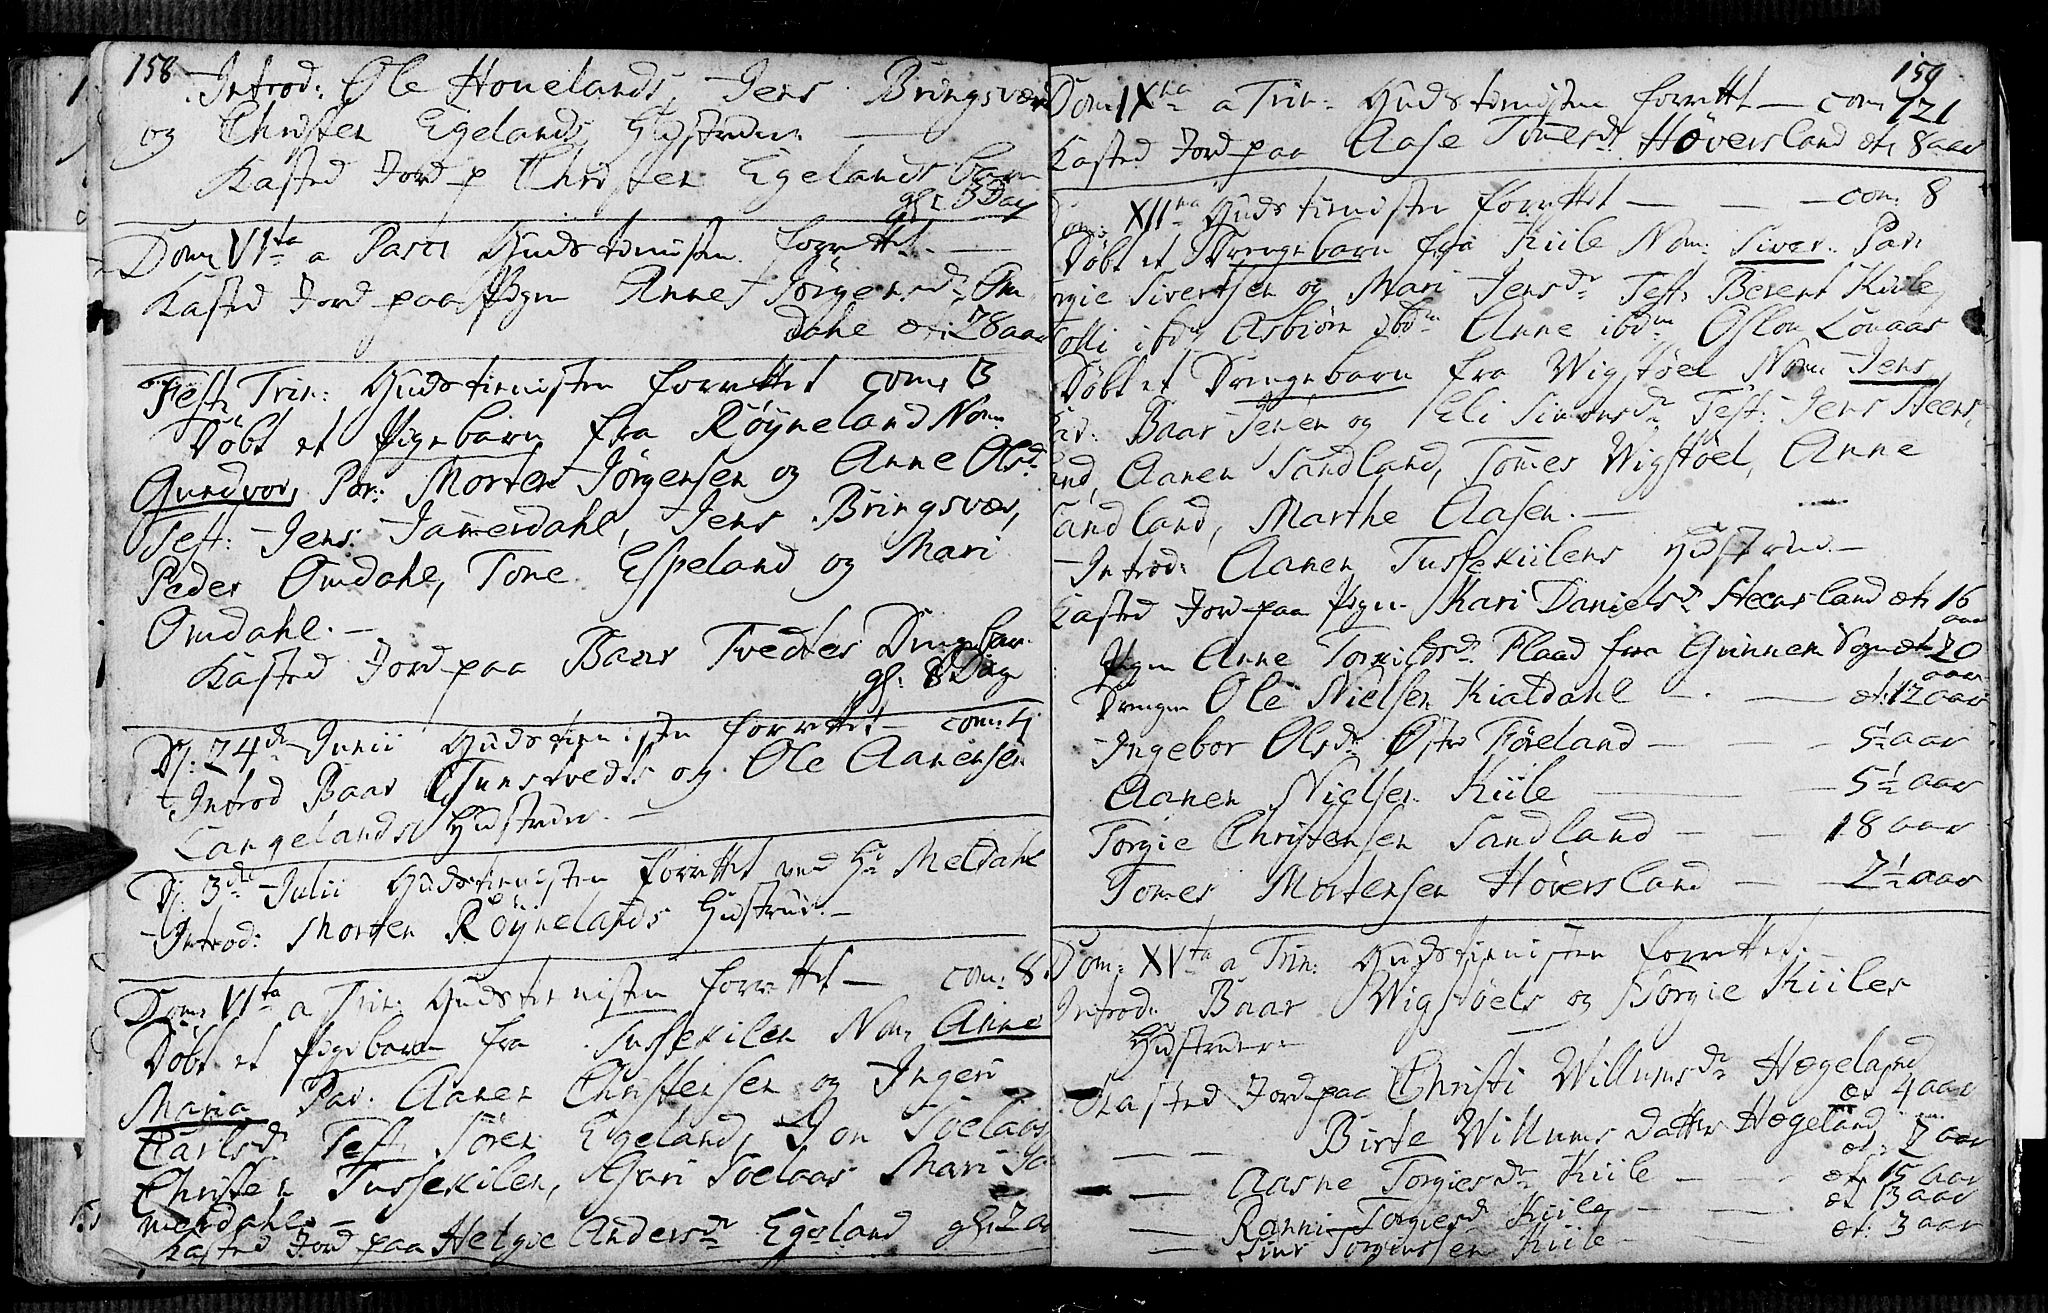 158
Introd: Ole Houelands, Jens Bringsvær
og Christen Egelands Hustruer. —
Kasted Jord p Christen Egelands barn
gl: 3 Dag
Dom VIta a Pasc: Gudstienisten forrettet. —
Kasted Jord paa Pigen Anne Jörgensdr Om
dahl æt: 28 aar
Fest: Trin: Gudstienisten forrettet com: 13
Döbt et Pigebarn fra Röyneland Nom:
Gundvor, Par: Morten Jörgensen og Anne Olsdr
Test: Jens Jamerdahl, Jens Bringsvær,
Peder Omdahl, Tone Espeland og Mari
Omdahl. —
Kasted Jord paa Baar Tvedtes Drengebar
gl: 8 Dag
D: 24de Junii Gudstienisten forrettet com: 4
Introd Baar Tunstvedts og Ole Aanensen
Langelands Hustruer. —
D: 3de Julii Gudstienisten forrettet ved Hr Meldahl
Introd: Morten Röynelands Hustrue. —
Dom: VIta a Trin: Gudstienisten forrettet — com: 8
Döbt et Pigebarn fra Tussekilen Nom: Anne
Maria Par: Aanen Christensen og Ingeri
Carlsdr Test: Sören Egeland, Jon Soelaas
Christen Tussekilen, Guri Soelaas Mari Ja
merdahl. —
Kasted Jord paa Helgie Andersdr Egeland gl: 2 aa
159
Dom: IXna a Trin: Gudstienisten forrettet — com: 121
Kasted Jord paa Aase Tomesdr Höversland æt: 8 aar
Dom: XIIna Gudstienisten forrettet — — — com: 8
Döbt et Drengebarn fra Kiile Nom: Siver. Par:
rgie Sivertsen og Mari Jensdr Test: Berent Kiile,
olli ibdm Asbiörn ibdm Anne ibdm Oslou Lonaas
Döbt et Drengebarn fra Wigstöel Nom: Jens,
Par: Baar Jensen og Eli Simonsdr Test: Jens Heers
land, Aanen Sandland, Tomes Wigstöel, Anne
Sandland, Marthe Aasen. —
Introd: Aanen Tussekiilens Hustrue. —
Kasted Jord paa Pigen Kari Danielsdr Heersland æt: 16
aar
Pigen Anne Torkildsdr Flaad fra Sogn æt 20
aar
Drengen Ole Nielsen Kialdahl — — æt: 12 aar
Ingebor Olsdr Östre Föreland — — 5½ aar
Aanen Nielsen Kiile — — 5½ aar
Torgie Christensen Sandland — — 18 aar
Tomes Mortensen Höversland — — 2½ aar
Dom: XVta a Trin: Gudstienisten forrettet. —
Introd: Baar Wigstöels og Torgie Kiiles
Hustruer —
Kasted Jord paa Christi Willumsdr Hægeland
æt 4 aar
— — Birte Willums datter Hægeland
æt: 7 aar
— Aasne Torgiesdr Kiile — — æt: 15 aar
— Ranni Torgiesdr Kiile — — æt 13 aar
— Siur Torgiussen Kiile — — æt: 3 aar